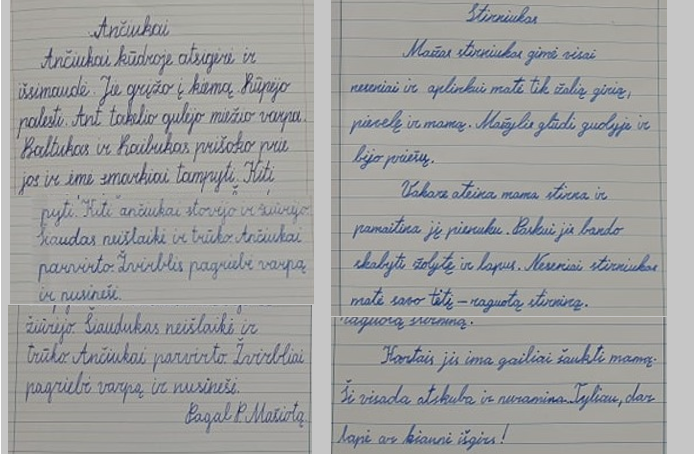 Ančiukai
Ančiukai kūdroje atsigėrė ir
išsimaudė. Jie grįžo į kiemą. Rūpėjo
palesti. Ant takelio gulėjo miežio varpa.
Baltukas ir Raibukas prišoko prie
jos ir ėmė smarkiai tampyti. Kiti
pyti. Kiti ančiukai stovėjo ir žiūrėjo.
Šiaudas neišlaikė ir trūko Ančiukai
parvirto. Žvirblis pagriebė varpą
ir nusinešė.
žiūrėjo. Šiaudukas neišlaikė ir
trūko Ančiukai parvirto. Žvirbliai
pagriebė varpą ir nusinešė.
Pagal P. Mašiotą
Stirniukas
Mažas stirniukas gimė visai
neseniai ir aplinkui matė tik žalią girią,
pievelę ir mamą. Mažylis glūdi guolyje ir
bijo priešų.
Vakare ateina mama stirna ir
pamaitina jį pienuku. Paskui jis bando
skabyti žolytę ir lapus. Neseniai stirniukas
matė savo tėtį – raguotą stirniną.
raguotą stirniną.
Kartais jis ima gailiai šaukti mamą.
Ši visada atskuba ir nuramina. Tyliau, dar
lapė ar kiaunė išgirs!